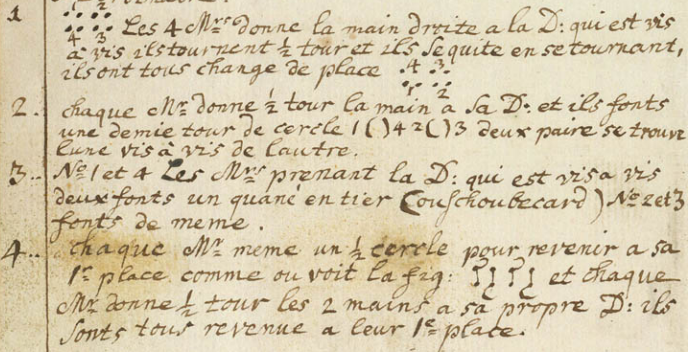 1 2
1 4 3 Les 4 Mrs donne la main droite a la D: qui est vis
à vis ils tournent ½ tour et ils se quite en se tournant,
ils ont tous change de place 4 3
1 2
2. chaque Mr donne ½ tour la main a sa De et ils fonts
une demie tour de cercle 1 () 4 2 () 3 deux paire se trouve
lune vis à vis de lautre.
3.. No 1 et 4 Les Mrs prenant la D: qui est vis a vis
deux fonts un quané en tier (ouschoubecard) No 2 et 3
fonts de meme.
4.. chaque Mr meme un ½ cercle pour revenir a sa
1re place comme ou voit la fig: et chaque
Mr donne ½ tour les 2 mains a sa propre D: ils
sonts tous revenue a leur 1re place.